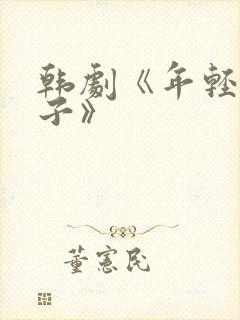 韩剧《年轻
子》
董宪民